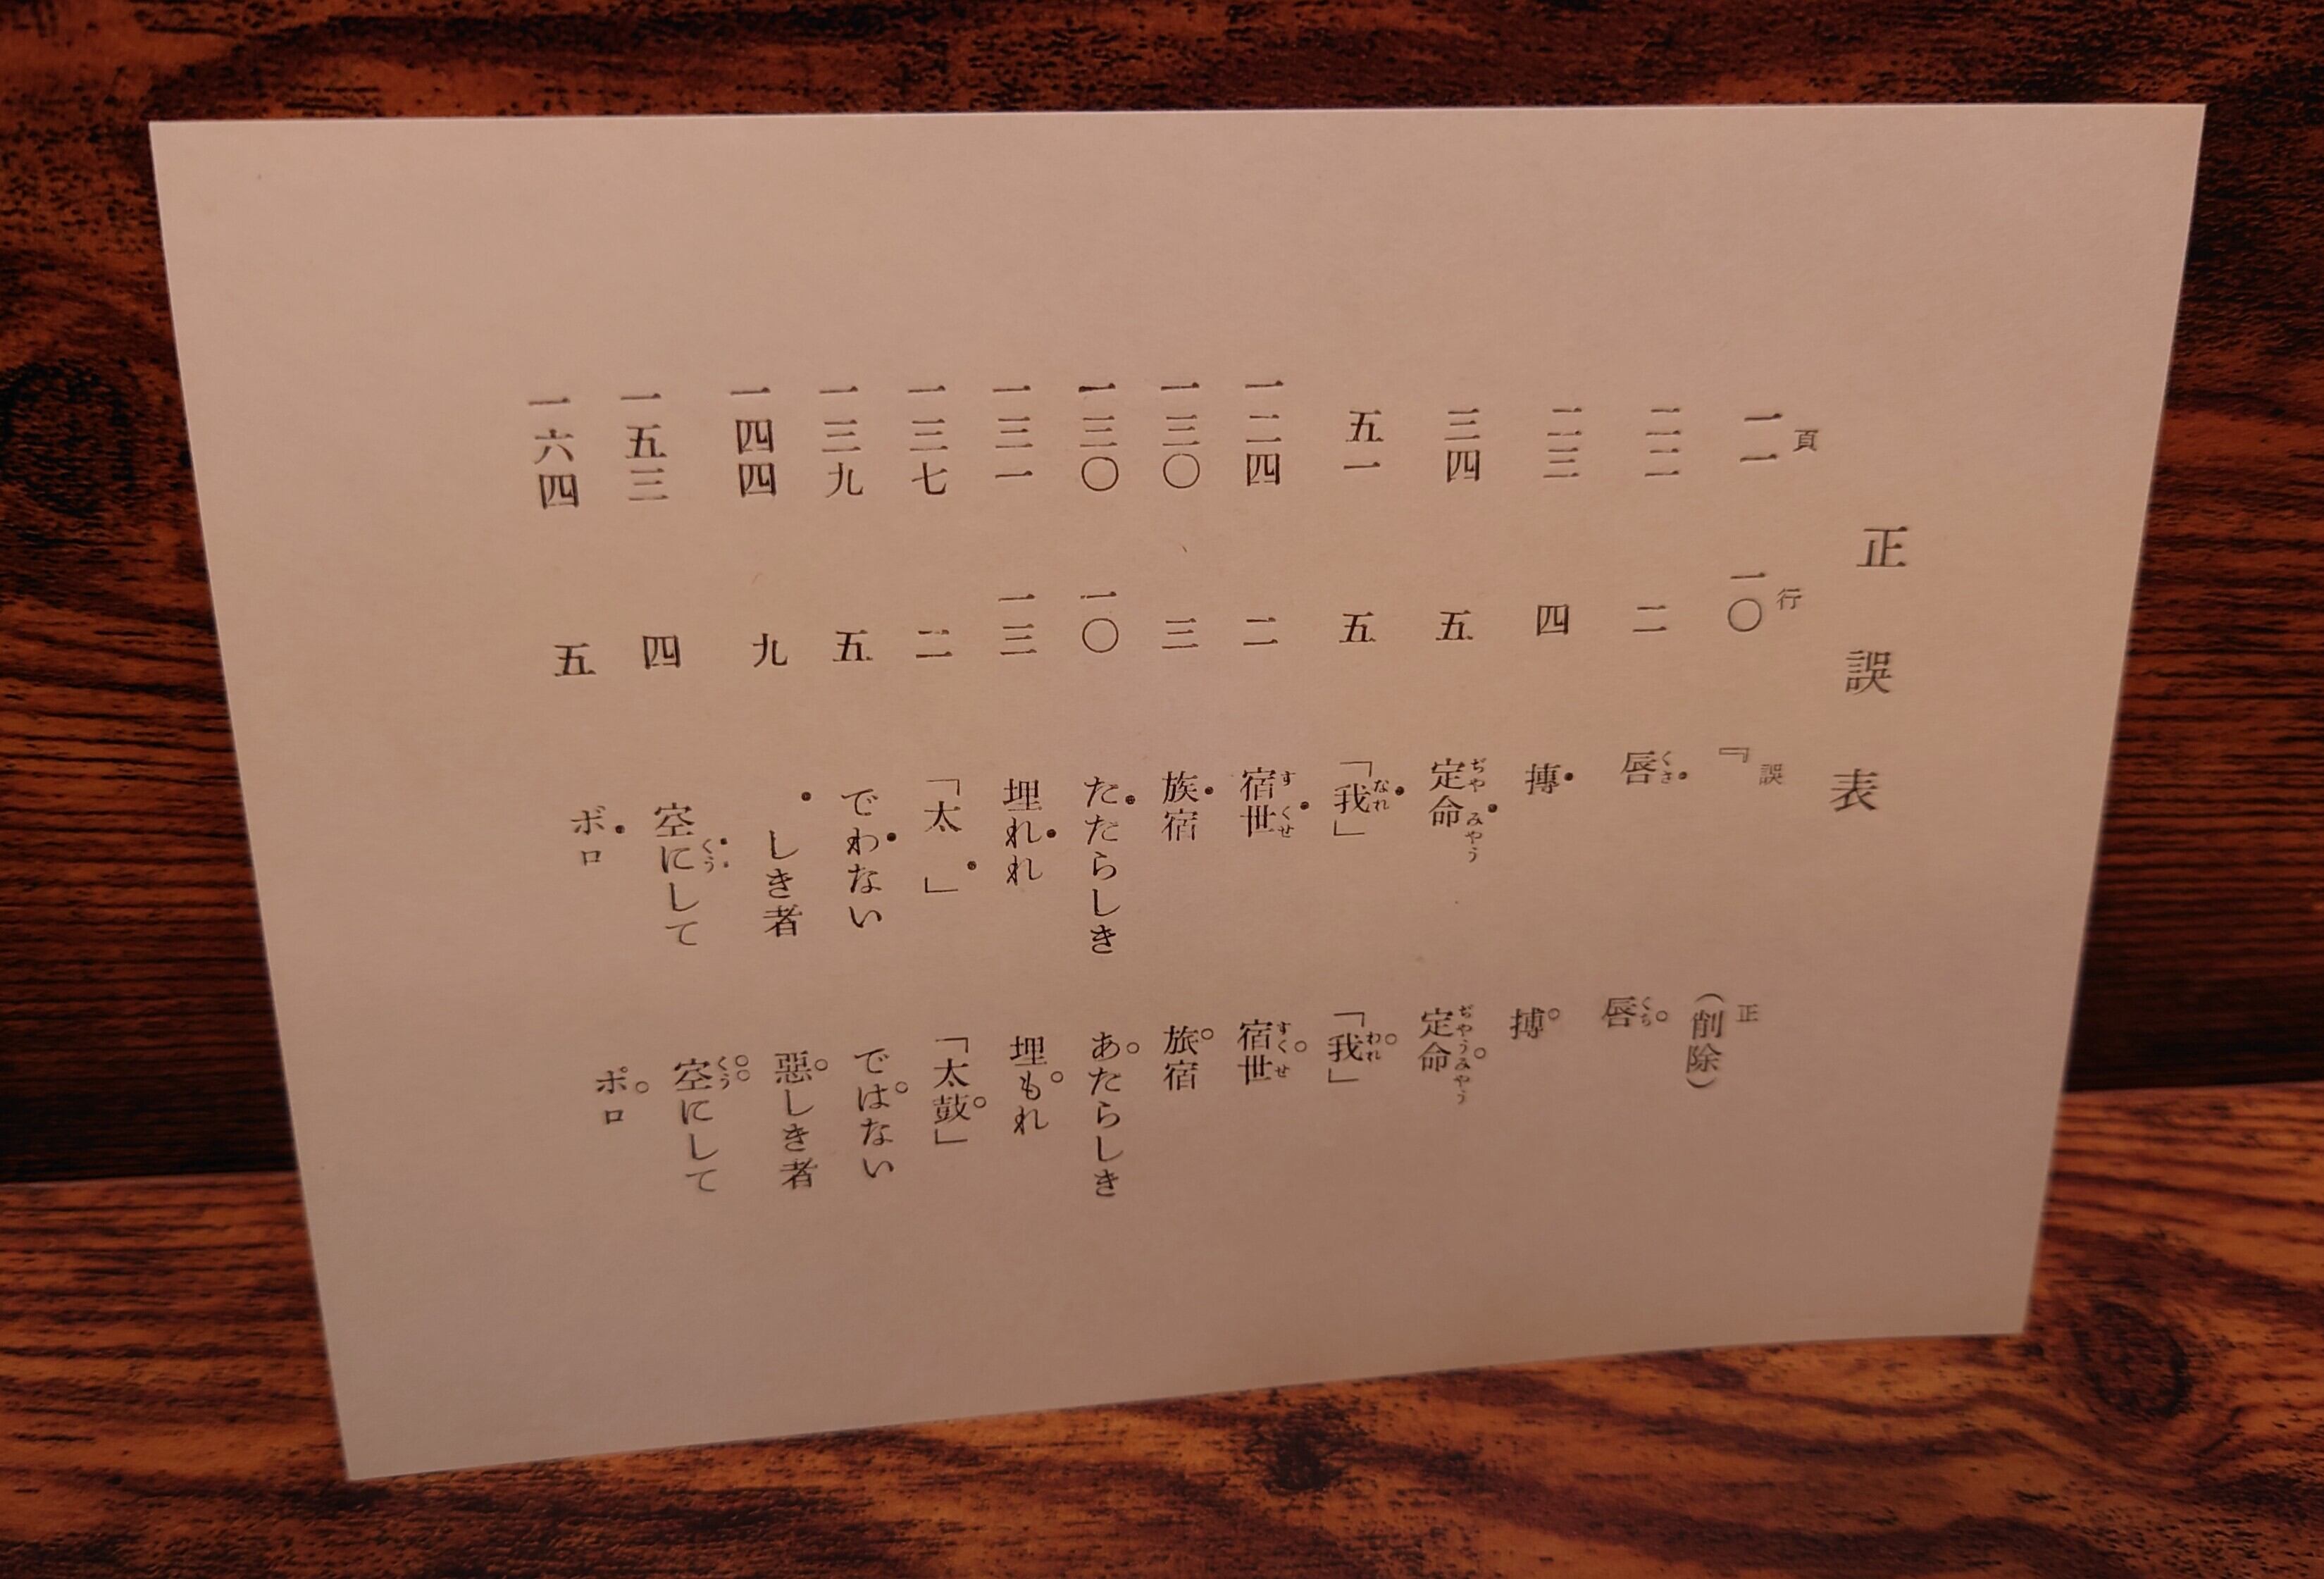 正誤表
頁 行 誤 正
一一 一〇 『 (削除)
二二 二 唇くさ 唇くち
二三 四 摶 搏
三四 五 定命ぢや みやう 定命ぢやうみやう
五一 五 「我なれ」 「我われ」
一二四 二 宿世す くせ 宿世すくせ
一三〇 三 族宿 旅宿
一三〇 一〇 たたらしき あたらしき
一三一 一三 埋れれ 埋もれ
一三七 二 「太 」 「太鼓」
一三九 五 でわない ではない
一四四 九 しき者 惡しき者
一五三 四 空にくうして 空くうにして
一六四 五 ボロ ポロ